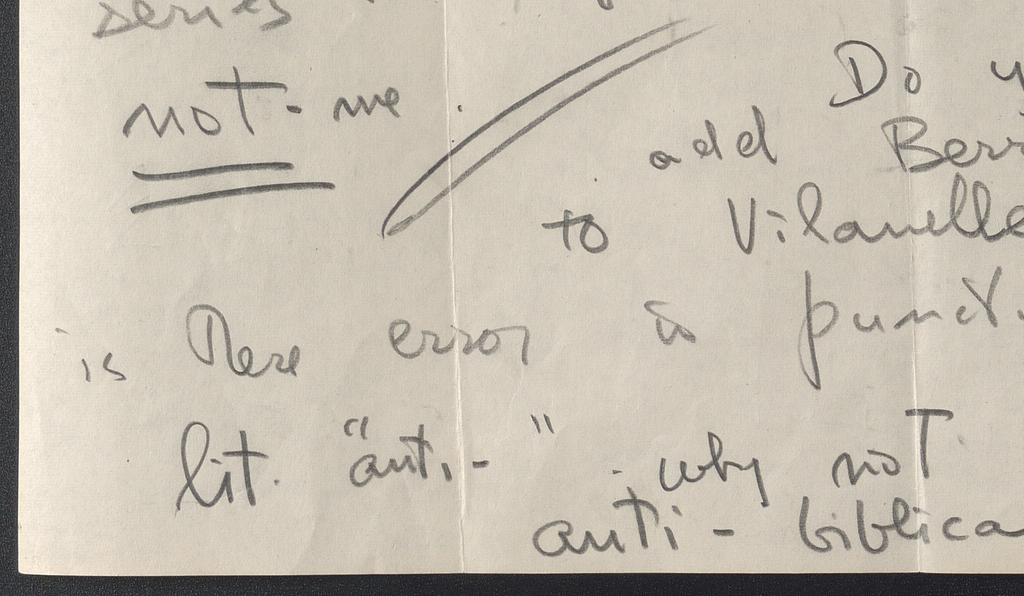 series
not-me.
Do
add
to Vilanelle
is there error in punct.
lit. "anti-" - why not
anti-biblica